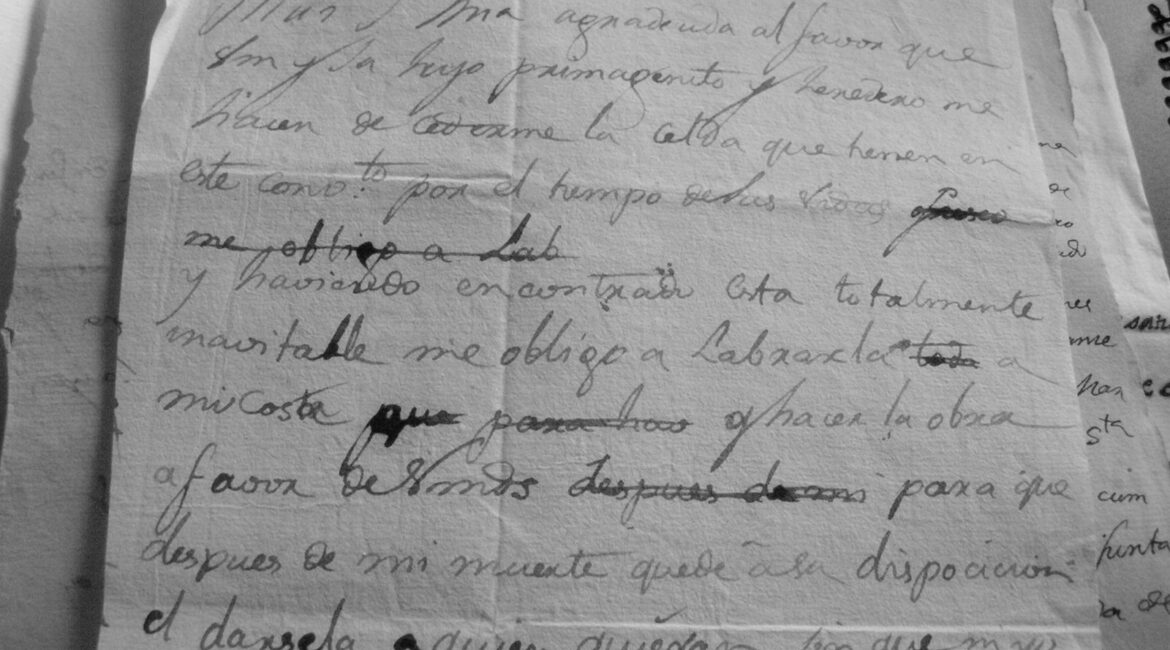 agradecida al favor que
Vm y su hijo primagenito y heredero me
hacen de cederme la celda que tienen en
este conv.to por el tiempo de las vidas
me obligo a Lab
y haviendo encontrado esta totalmente
inavitable me obligo a Labrarla toda a
mi costa que para hav y hacer la obra
a favor de Vmds despues de mi para que
despues de mi muerte quede â su dispocicion
el darsela a quien
sta
cum
junta